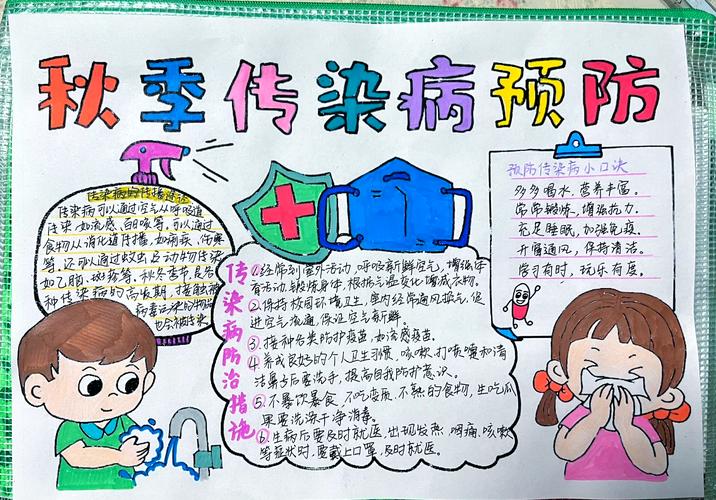 秋季传染病预防
传染病的传播途径
传染病可以通过空气从呼吸道
传染如流感、百日咳等，可以通过
食物从消化道传播，如痢疾、伤寒
等，还可以通过蚊虫叮动物传染
如乙脑、斑疹等。秋冬季节是各
种传染病的高发期，接触被
病毒污染的物品
也会被传染。
传染病防治措施
①经常到室外活动，呼吸新鲜空气，增强体
育活动与锻炼身体，根据气温变化增减衣物。
②保持校园环境卫生，室内经常通风换气，促
进空气流通，保证空气新鲜。
③接种各类防护疫苗，如流感疫苗。
④养成良好的个人卫生习惯，咳嗽、打喷嚏和清
洁鼻子后要洗手，提高自我防护意识。
⑤不暴饮暴食，不吃变质、不熟的食物，生吃瓜
果要洗涤干净消毒。
⑥生病后要及时就医，出现发热、咽痛、咳嗽
等症状时，要戴上口罩，及时就医。
预防传染病小口诀
多多喝水，营养丰富。
常常锻炼，增强抗力。
充足睡眠，加强免疫。
开窗通风，保持清洁。
学习有时，玩乐有度。